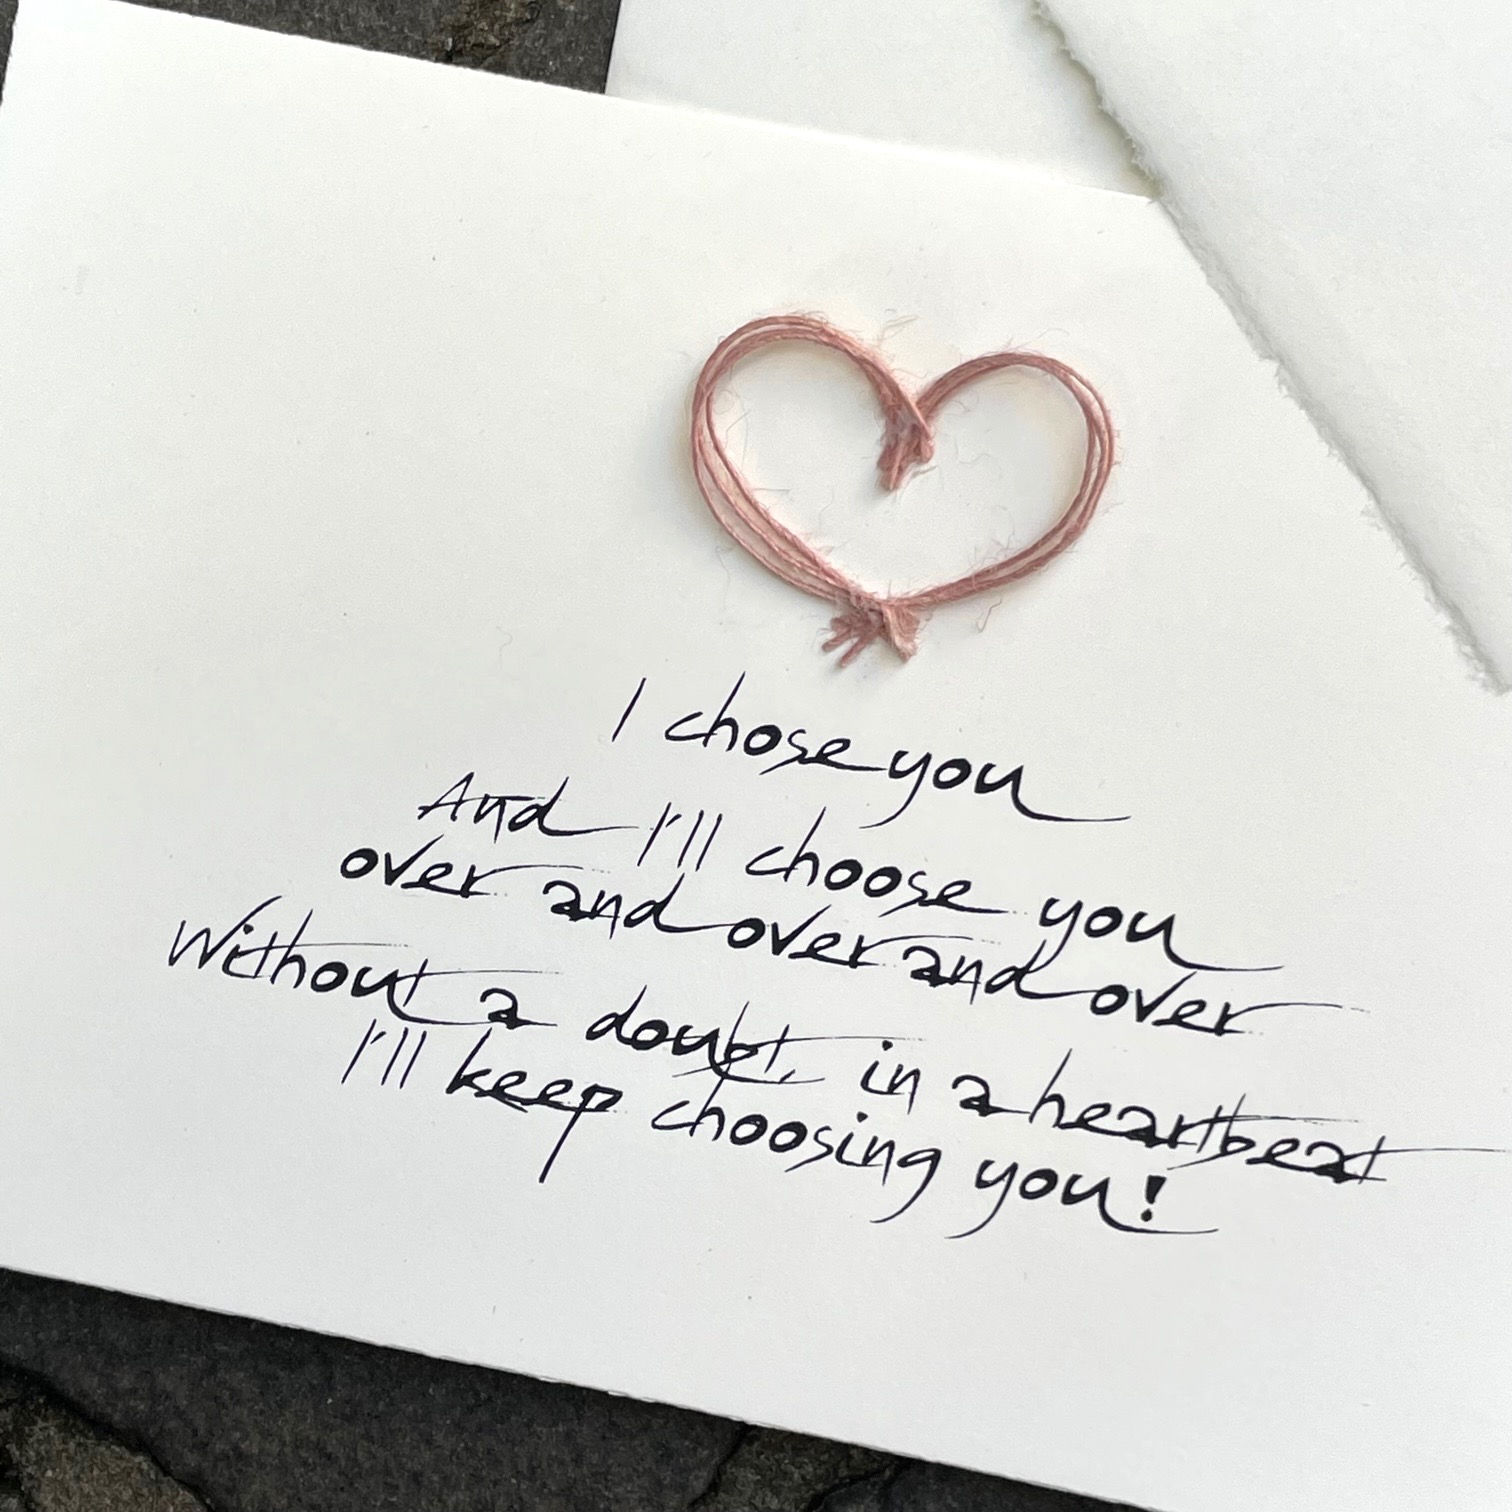 I chose you
And I'll choose you
over and over and over
Without a doubt, in a heartbeat
I'll keep choosing you!